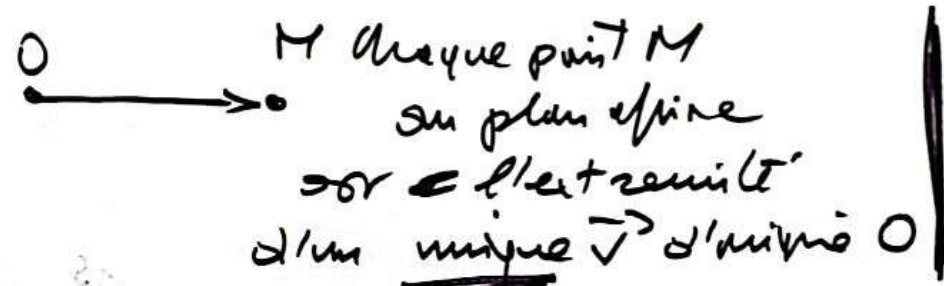 O M Chaque point M
du plan affine
est l'extrémité
d'un unique v⃗ d'origine O